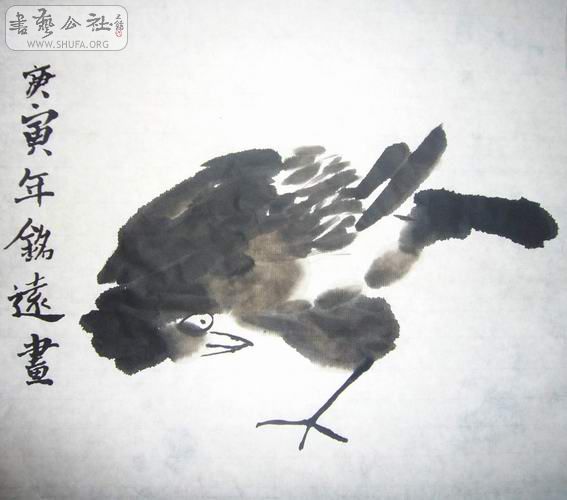 書藝公社
WWW.SHUFA.ORG
庚寅年銘遠畫